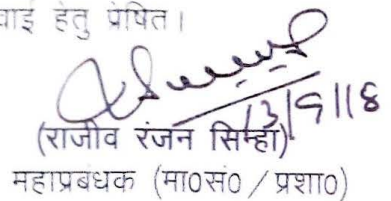 वाई हेतु प्रेषित।
13/9/18
(राजीव रंजन सिन्हा)
महाप्रबंधक (मा0सं0 / प्रशा0)